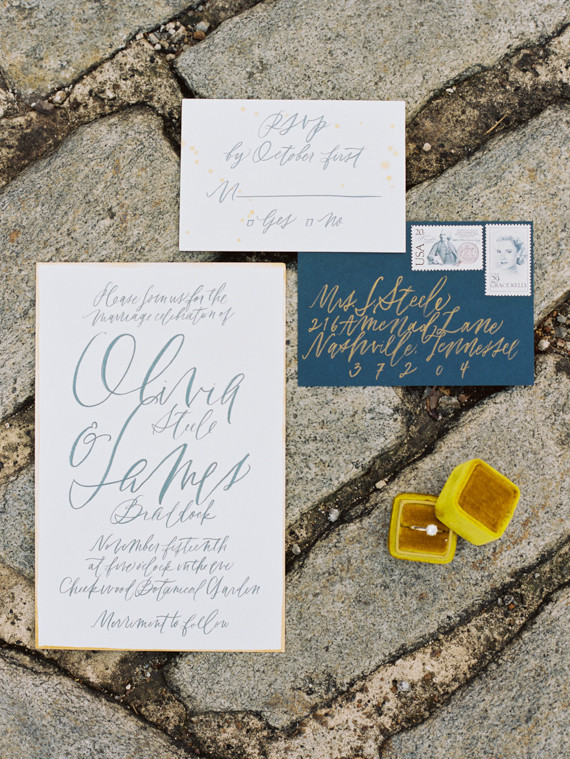 RSVP
by October first
M
Yes No
USA 20
29
GRACE KELLY
Mrs. S. Steele
216 Amenad Lane
Nashville, Tennessee
3 7 2 0 4
Please join us for the
marriage celebration of
Olivia
Steele
& James
Braddock
November fifteenth
at five o'clock in the eve
Cheekwood Botanical Garden
Merriment to follow